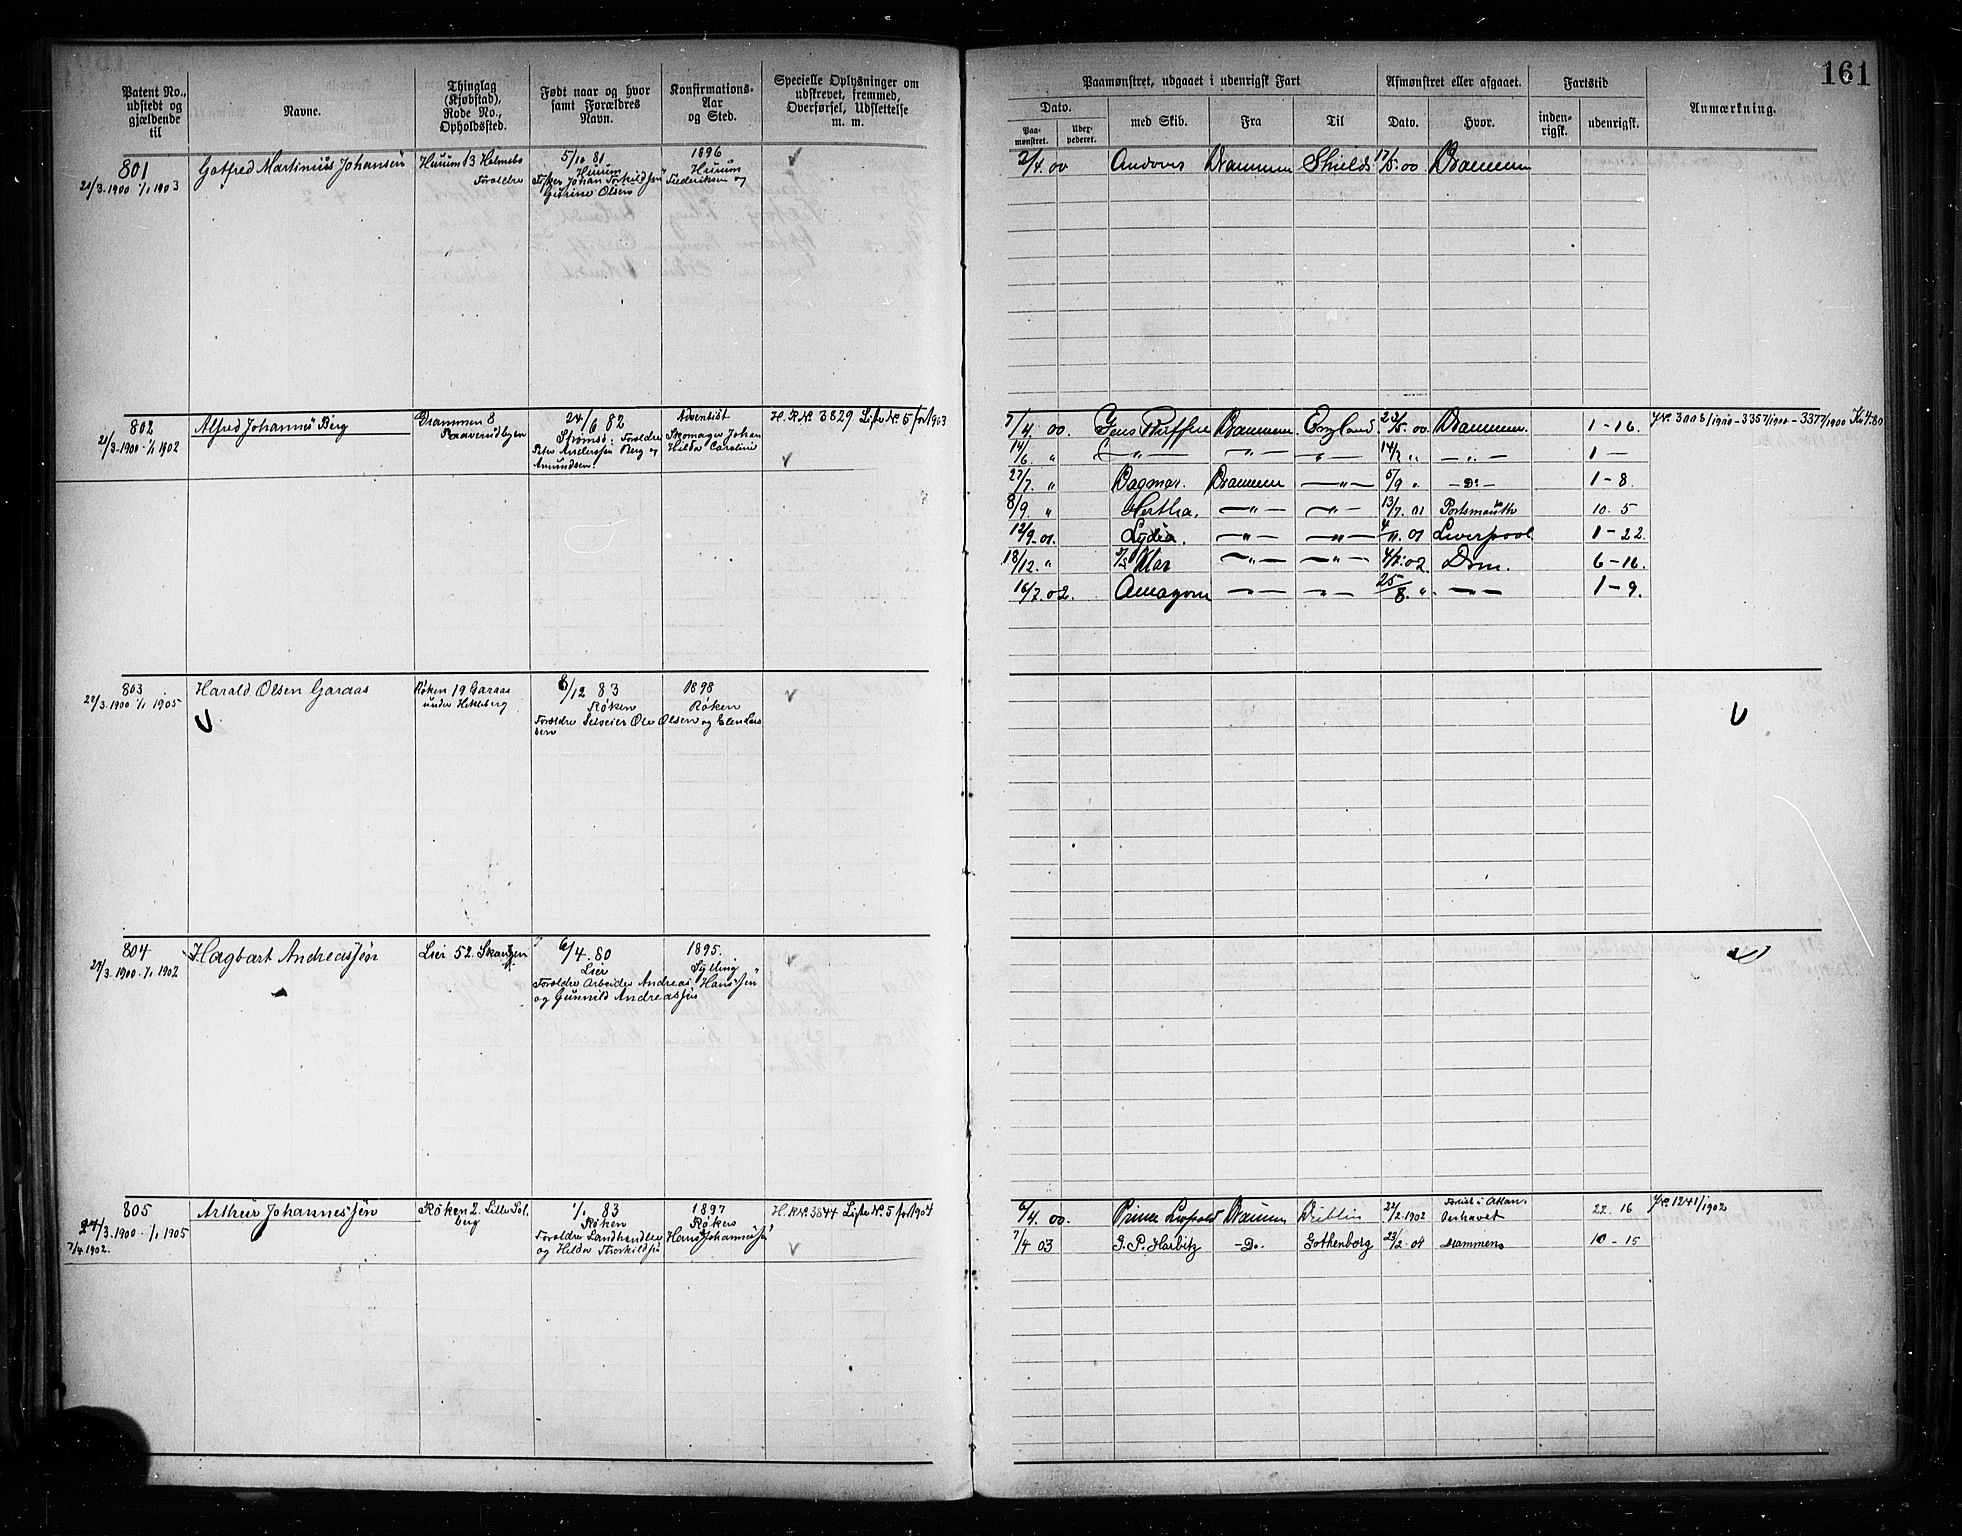 161
Patent No., udstedt og gjældende til
Navne.
Thinglag (Kjøbstad), Rode No., Opholdssted.
Født naar og hvor samt Forældres Navn.
Konfirmations-Aar og Sted.
Specielle Oplysninger om udskrevet, fremmed, Overførsel, Udslettelse m. m.
Paamønstret, udgaaet i udenrigsk Fart
Afmønstret eller afgaaet.
Fartstid
Anmærkning.
Dato.
med Skib.
Fra
Til
Dato.
Hvor.
inden-rigsk.
udenrigsk.
Paa-mønstret.
801
21/3.1900 1/1 1903
Gotfred Martinius Johansen
Hurum 13 Holmsbo
Forældre
5/10 81
Hurum
Fisker Johan Torkildsen
Gurine Olsen
1896
Hurum
Frederiksen og
2/4. 00 Andover Drammen Shields 17/5. 00 Drammen
802
21/3.1900 - 1/1 1902
Alfred Johannes Berg
Drammen 8
24/6 82
Strømsø: Forældre
Berg og
Amundsen
Adventist
Skomager Johan
Hilda Caroline
H. R. No. 3829 Liste No. 5 for 1903
7/4. 00. Drammen England. 00 Drammen. 1-16.
14/6. " — " — — " — — " — 14/7 " — " — 1 —
27/7. " Dagmar. Drammen — " — 5/9 " — Do — 1-8
8/9. " Hertha. — " — — " — 13/7. 01 Portsmouth 10. 5
12/9-01. Lydia. — " — — " — 4/11. 01 Liverpool 1-22.
18/12. " — " — — " — 02. Drm. 6-16.
16/7 02. — " — — " — 25/8. " — " — 1-9.
803
22/3.1900 1/1 1905
Harald Olsen Garaas
Røken 19 Garaas
under Hekleberg
8/12 83
Røken
Forældre Ole Olsen og Elen Lars
sen
1898
Røken
804
24/3.1900 - 1/1 1902
Hagbart Andreassen
Lier 52.
6/4. 80
Lier
Forældre Arbeider Andreas Hanssen
og Gunnild Andreassen
1895.
Sylling
805
24/3.1900 - 1/1 1905
7/4 1902.
Arthur Johannessen
Røken 2. Lille Sol
berg
1/1 83
Røken
Forældre Landhandler Hans Johannessen
og Hilda Thorkildsen
1897
Røken
H. R. No. 3844 Liste No. 5 for 1904
6/4. 00. Prince Leopold Drammen Dublin 22/2.1902 22. 16 J.No. 1241/1902
7/4 03 G. P. Harbitz — Do. Gothenborg 23/2-04 Drammen 10-15